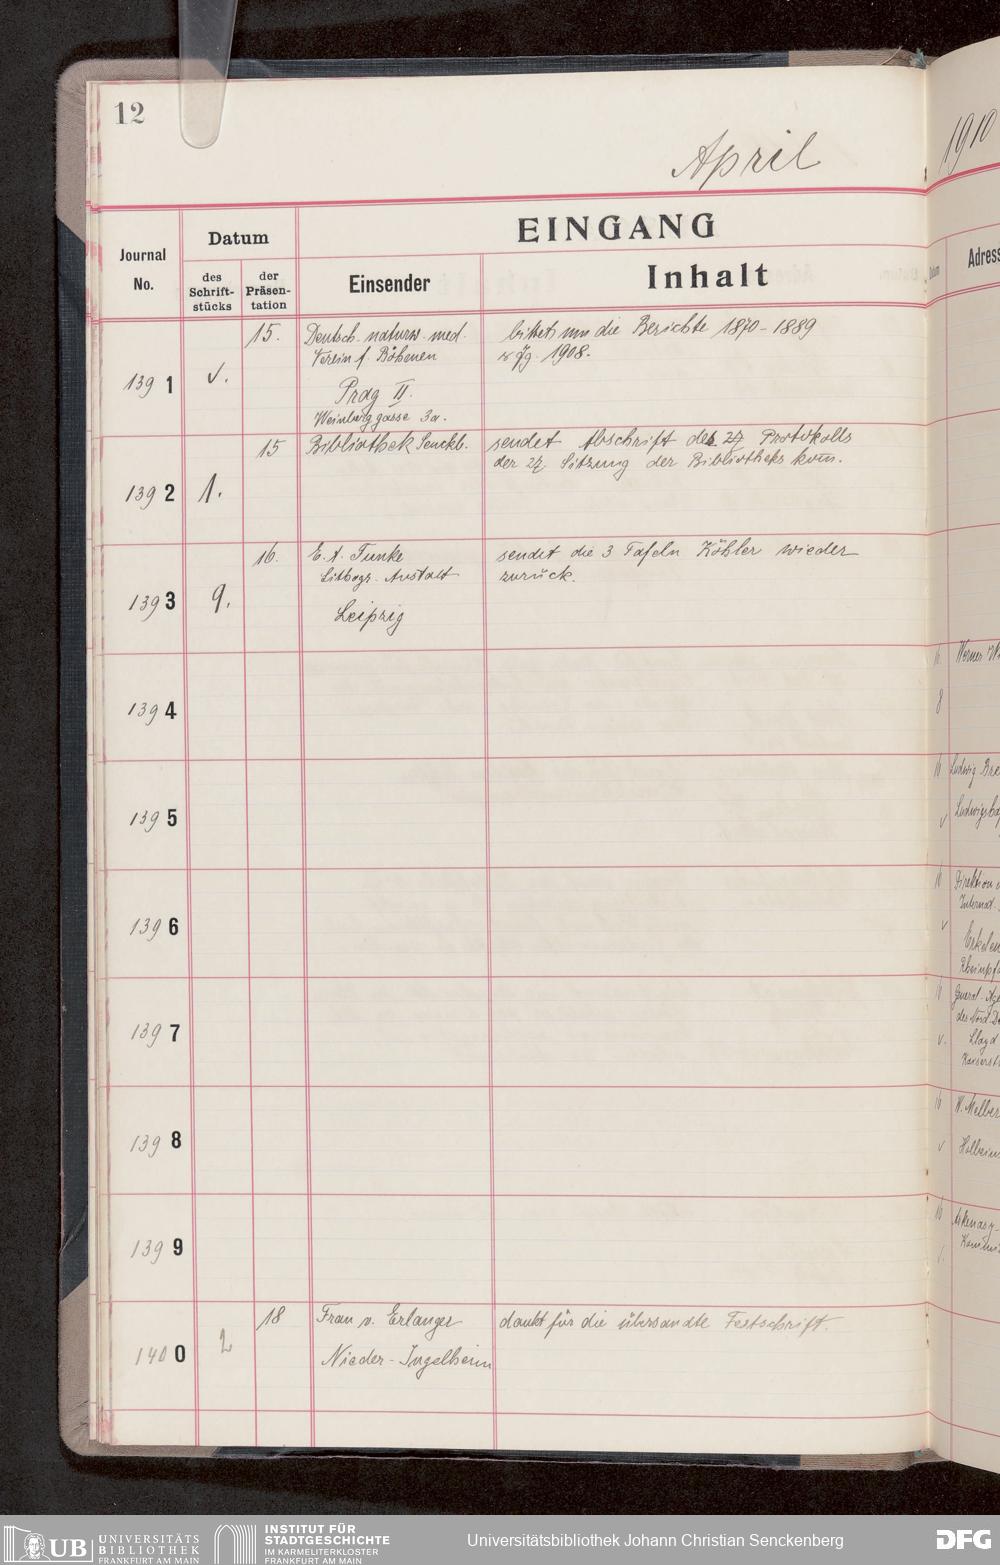 12
April
1910
EINGANG
Journal
No.
Datum
des
Schrift-
stücks
der
Präsen-
tation
Einsender
Inhalt
Datum
Adress
1391
v.
15.
Deutsch. naturw. med.
Verein f. Böhmen
Prag II.
Weinberggasse 3a.
bittet um die Berichte 1870-1889
1908.
1392
1.
15
Bibliothek Senckb.
sendet Abschrift des 27 Protokolls
der 27. Sitzung der Bibliotheks kom.
1393
9.
16.
E. A. Funke
Lithogr. Anstalt
Leipzig
sendet die 3 Tafeln Köhler wieder
zurück.
1394
16
Werner
8
1395
16
Ludwig
v
Ludwigsha
1396
16
Direktion
Internat.
v
Rheinpf
1397
16
General-Age
des Nord. D
v.
Lloyd
Kaiserst
1398
16
W. Melber
v
Holbein
1399
16
1400
2
18
Frau v. Erlanger
Nieder-Ingelheim
dankt für die übersandte Festschrift.
UB
UNIVERSITÄTS
BIBLIOTHEK
FRANKFURT AM MAIN
INSTITUT FÜR
STADTGESCHICHTE
IM KARMELITERKLOSTER
FRANKFURT AM MAIN
Universitätsbibliothek Johann Christian Senckenberg
DFG